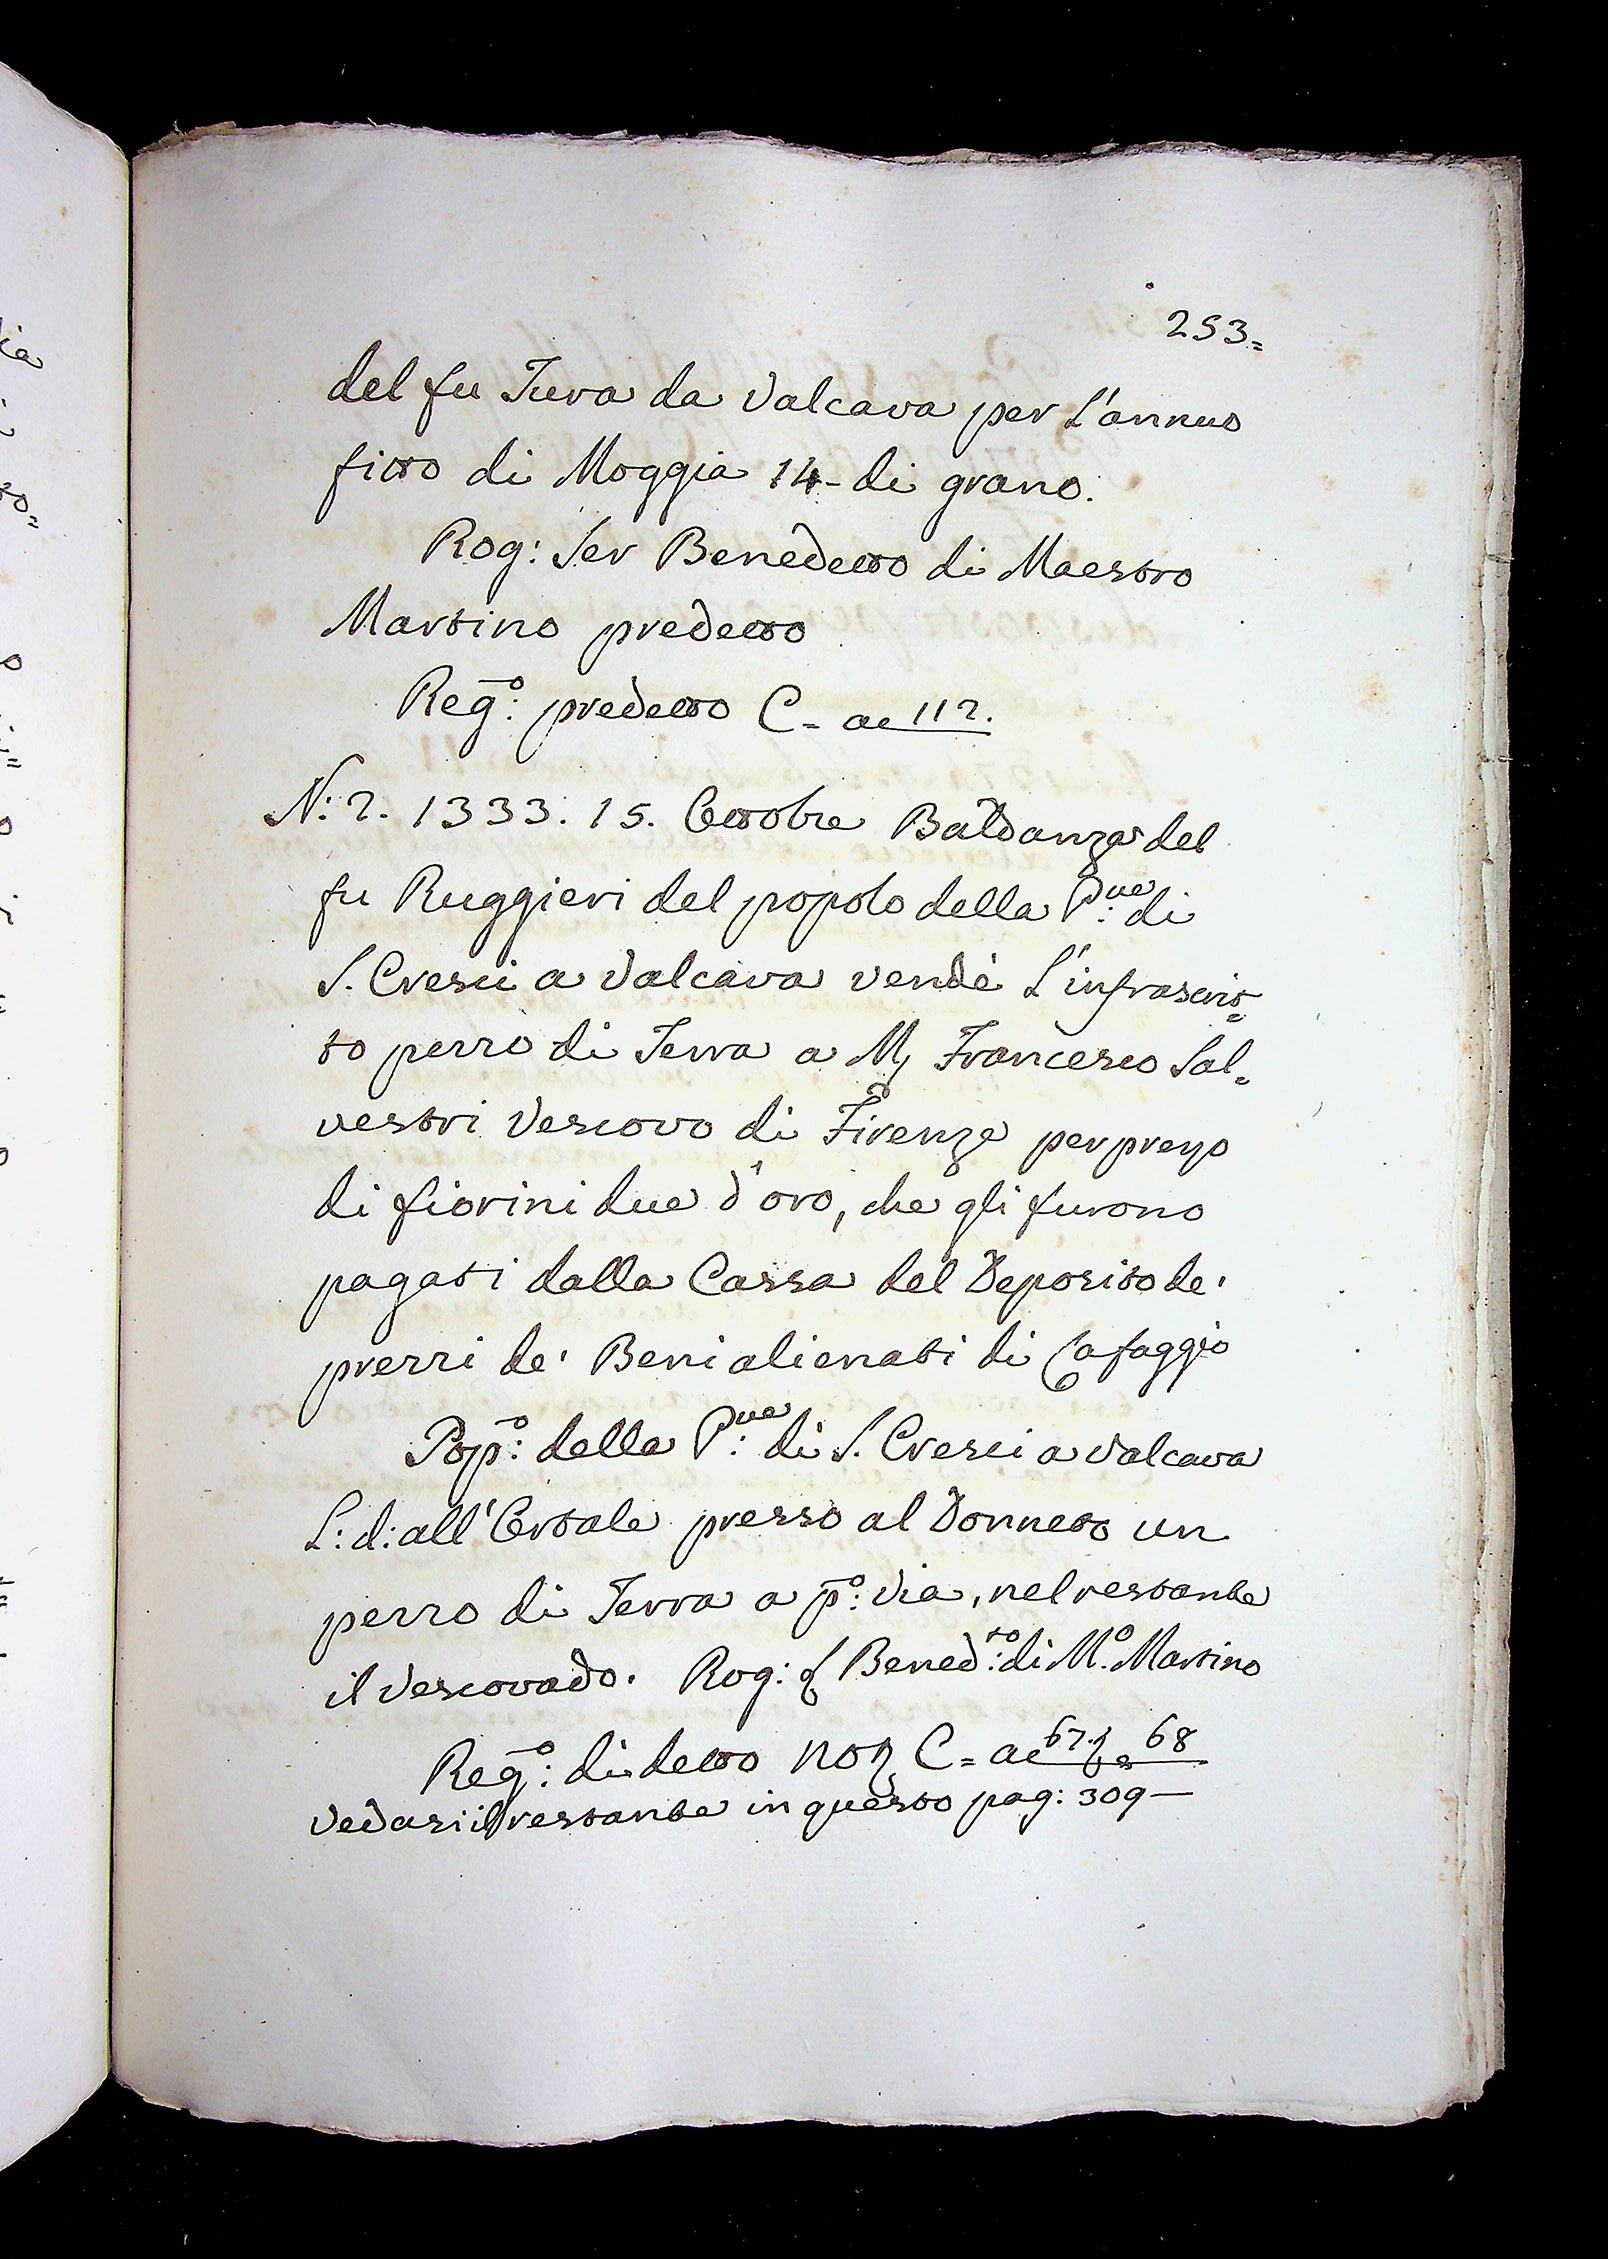 253=
del fu Tura da Valcava per L'annuo
fitto di Moggia 14- di grano.
Rog: Ser Benedetto di Maestro
Martino predetto
Reg:º predetto C= ae 112.
N: 2. 1333. 15. Ottobre Baldanza del
fu Ruggieri del popolo della P:ve di
S. Cresci a Valcava vendè L'infrascrit=
to pezzo di Terra a M, Francesco Sal=
vestri Vescovo di Firenze per prezzo
di fiorini due d'oro, che gli furono
pagati dalla Cassa del Deposito de'
prezzi de' Beni alienati di Cafaggio
Pop:º della P:ve di S. Cresci a Valcava
L: d: all'Ortale presso al Donneto un
pezzo di Terra a p:º Via, nel restante
il Vescovado. Rog: S Bened:to di M.º Martino
Reg:º di detto Not C= ae 67. e 68
Vedasi il restante in questo pag: 309—